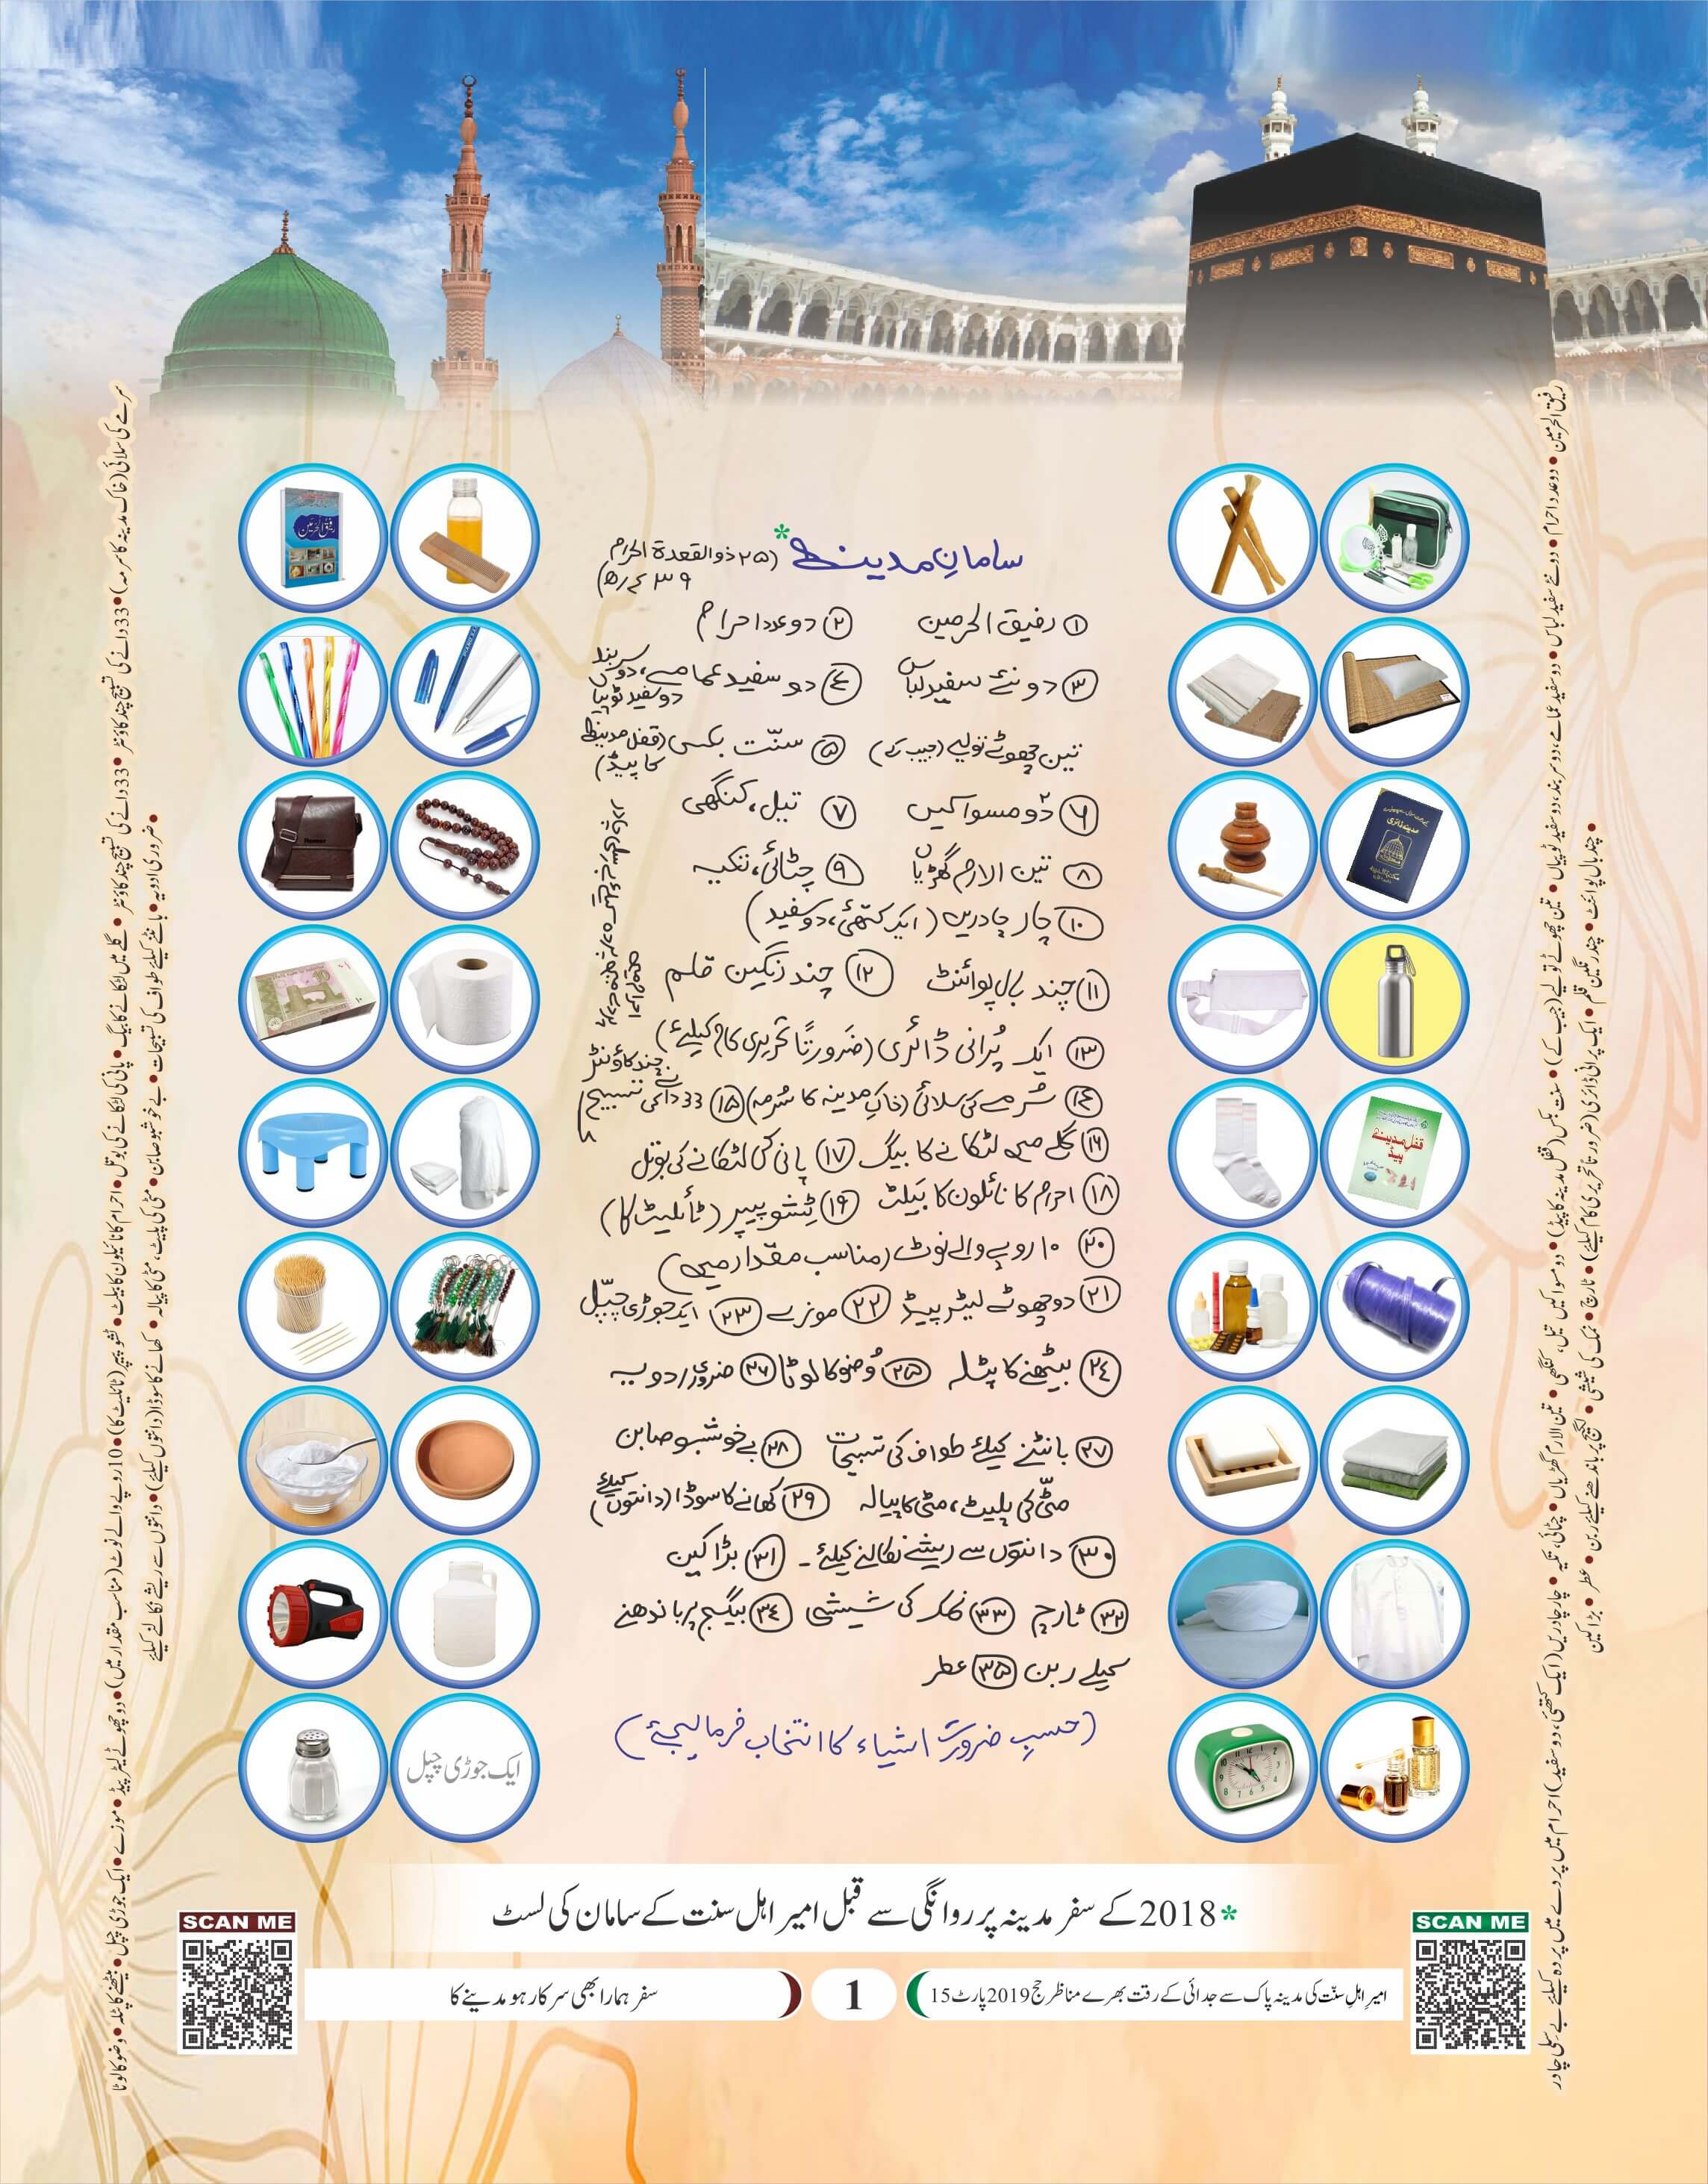 سامانِ مدینہ * (۲۵ ذوالقعدۃ الحرام
۱۴۳۹ھ)
① رفیق الحرمین ② دو عدد احرام
③ دو نئے سفید لباس ④ دو سفید عمامے، دو سربند
دو سفید ٹوپیاں
تین چھوٹے تولیے (جیب کے) ⑤ سنّت بکس (قفل مدینہ
کا پیڈ)
⑥ دو مسواکیں ⑦ تیل، کنگھی
⑧ تین الارم گھڑیاں ⑨ چٹائی، تکیہ
⑩ چار چادریں (ایک کتھئی، دو سفید)
احرام میں پردے میں پردہ کیلئے بے سلی چادر
⑪ چند بال پوائنٹ ⑫ چند رنگین قلم
⑬ ایک پُرانی ڈائری (ضَرورتاً تحریری کام کیلئے)
⑭ سُرمے کی سلائی (خاکِ مدینہ کا سُرمہ) ⑮ 33 دانے کی تسبیح
چند کاؤنٹر
⑯ گلے میں لٹکانے کا بیگ ⑰ پانی کی لٹکانے کی بوتل
⑱ احرام کا نائلون کا بَیلٹ ⑲ ٹِشو پیپر (ٹائلیٹ کا)
⑳ ۱۰ روپے والے نوٹ (مناسب مقدار میں)
㉑ دو چھوٹے لیٹر پیڈ ㉒ موزے ㉓ ایک جوڑی چپّل
㉔ بیٹھنے کا پٹلہ ㉕ وُضو کا لوٹا ㉖ ضروری ادویہ
㉗ بانٹنے کیلئے طواف کی تسبیحات ㉘ بے خوشبو صابن
مٹّی کی پلیٹ، مٹی کا پیالہ ㉙ کھانے کا سوڈا (دانتوں کیلئے)
㉚ دانتوں سے ریشے نکالنے کیلئے ۔ ㉛ بڑا کین
㉜ ٹارچ ㉝ نمک کی شیشی ㉞ بیگیج پر باندھنے
کیلے ربن ㉟ عطر
(حسبِ ضرورت اشیاء کا انتخاب فرما لیجئے)
رفیق الحرمین
قفلِ مدینہ
پیڈ
ایک جوڑی چپل
رفیق الحرمین • دو عدد احرام • دو نئے سفید لباس • دو سفید عمامے، دو سربند، دو سفید ٹوپیاں • تین چھوٹے تولیے (جیب کے) • سنت بکس (قفل مدینہ کا پیڈ) • دو مسواکیں تیل، کنگھی • تین الارم گھڑیاں • چٹائی، تکیہ • چار چادریں (ایک کتھئی، دو سفید) احرام میں پردے میں پردہ کیلئے بے سلی چادر
• چند بال پوائنٹ • چند رنگین قلم • ایک پرانی ڈائری (ضرورتاً تحریری کام کیلئے) • ٹارچ • نمک کی شیشی • لگیج پر باندھنے کیلئے ربن • عطر • بڑا کین
سرمے کی سلائی (خاک مدینہ کا سرمہ) • 33 دانے کی تسبیح چند کاؤنٹر • 33 دانے کی تسبیح چند کاؤنٹر • گلے میں لٹکانے کا بیگ • پانی کی لٹکانے کی بوتل • احرام کا نائیلون کا بیلٹ • ٹشو پیپر (ٹائلٹ کا) • 10 روپے والے نوٹ (مناسب مقدار میں) • دو چھوٹے لیٹر پیڈ • موزے • ایک جوڑی چپل • بیٹھنے کا پٹلہ • وضو کا لوٹا
• ضروری ادویہ • بانٹنے کیلئے طواف کی تسبیحات • بے خوشبو صابن • مٹی کی پلیٹ، مٹی کا پیالہ • کھانے کا سوڈا (دانتوں کیلئے) • دانتوں سے ریشے نکالنے کیلئے
*2018 کے سفر مدینہ پر روانگی سے قبل امیر اہل سنت کے سامان کی لسٹ
SCAN ME
SCAN ME
امیر اہل سنّت کی مدینہ پاک سے جدائی کے رقت بھرے مناظر حج 2019 پارٹ 15
1
سفر ہمارا بھی سرکار ہو مدینے کا